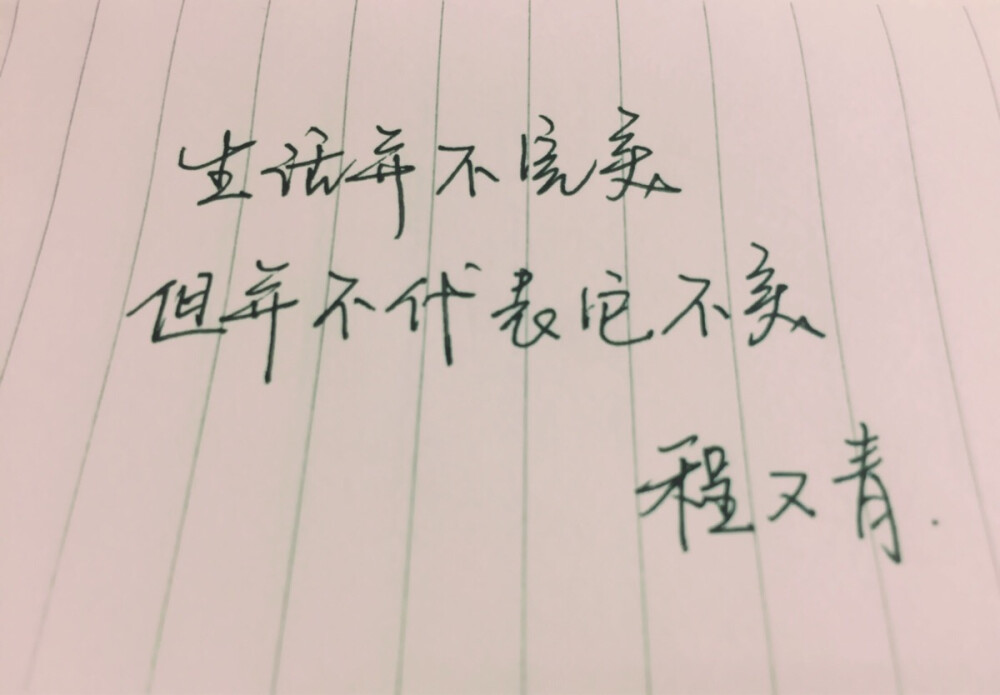 生活并不完美
但并不代表它不美
程又青.